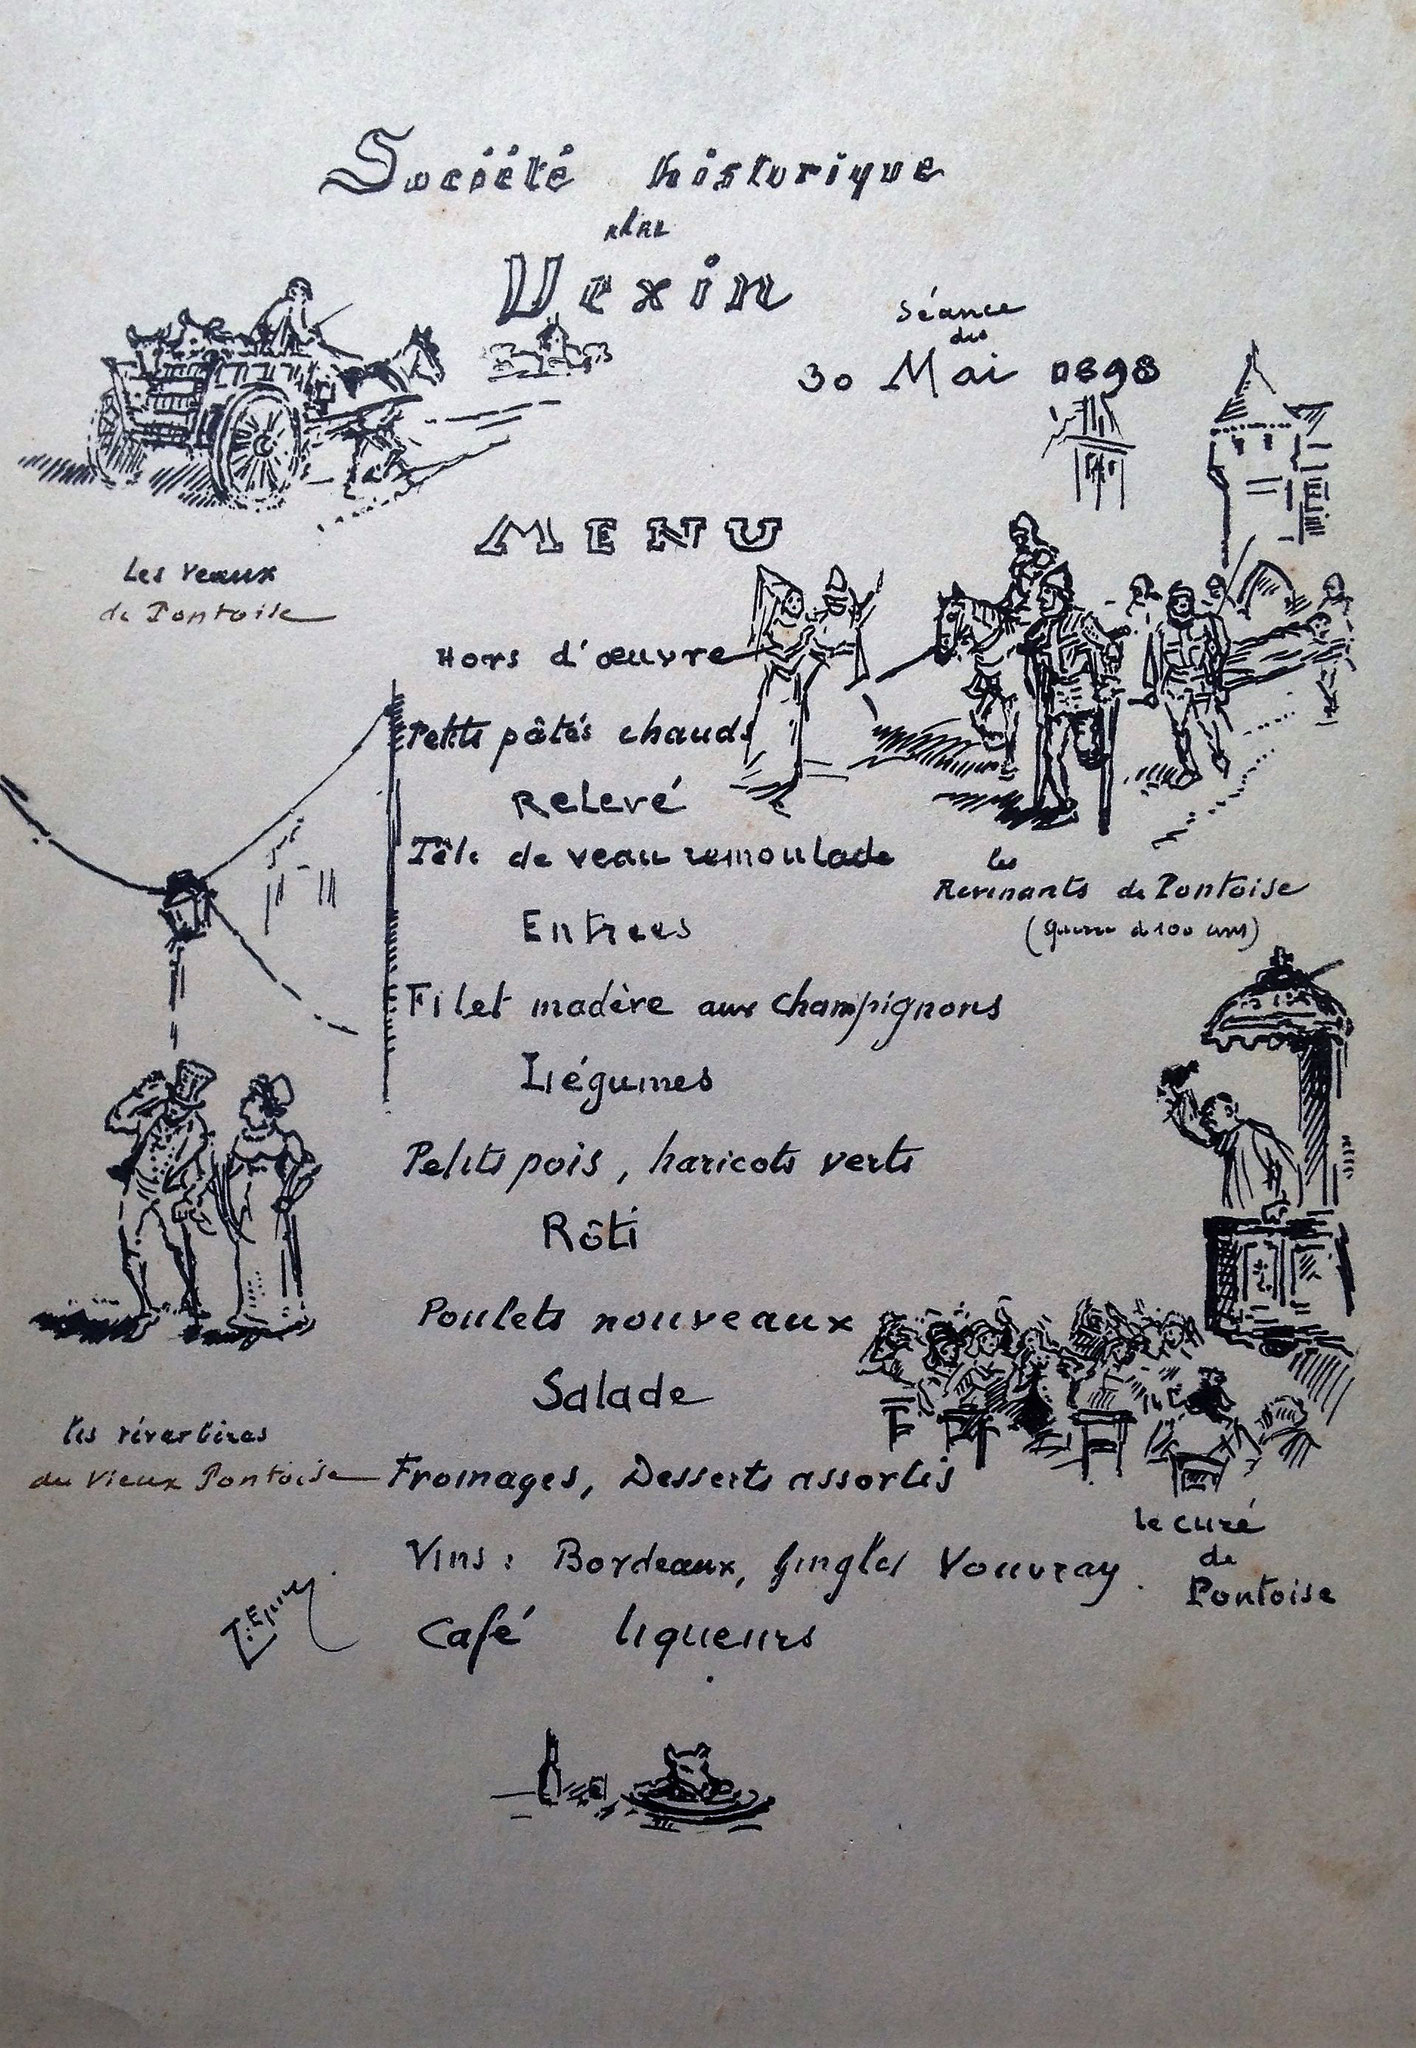 Société historique
du
Vexin
Séance
du
30 Mai 1898
MENU
Les veaux
de Pontoise
Hors d'œuvre
Petits pâtés chauds
Relevé
Tête de veau remoulade
les
Revenants de Pontoise
(guerre de 100 ans)
Entrees
Filet madère aux champignons
Légumes
Petits pois, haricots verts
Rôti
Poulets nouveaux
Salade
les réverbères
du Vieux Pontoise
Fromages, Desserts assortis
le curé
de
Pontoise
Vins: Bordeaux, Vouvray.
Café liqueurs